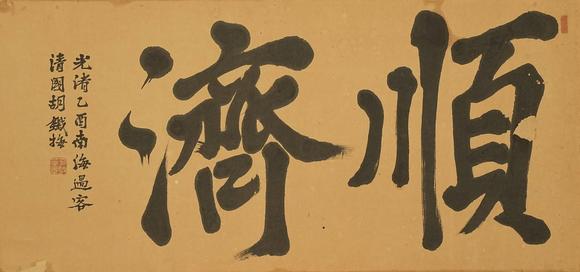 順濟
光渚乙酉南海過客
清國胡鐵梅